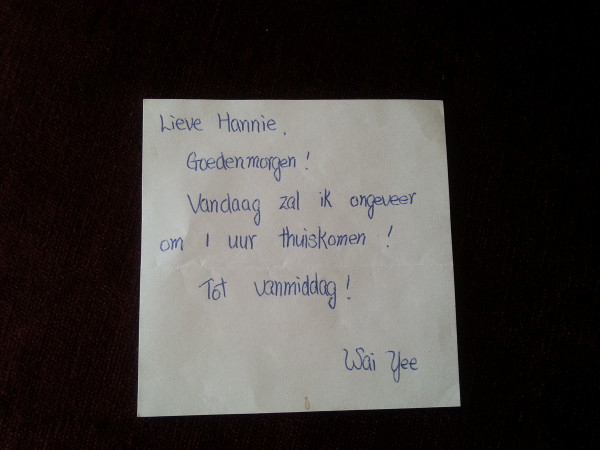 Lieve Hannie.
Goedenmorgen!
Vandaag zal ik ongeveer
om 1 uur thuiskomen!
Tot vanmiddag!
Wai Yee